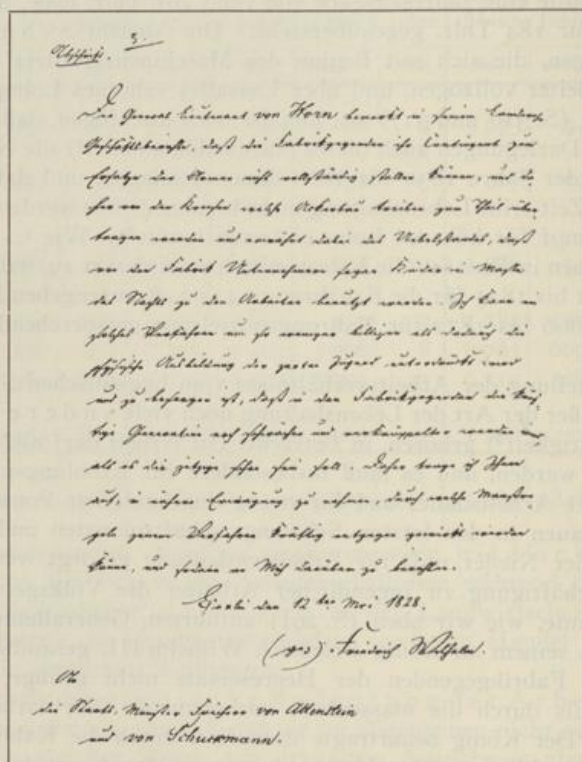 Abschrift.
Der General Lieutenant von Horn bemerkt in seinem Landwehr
Geschäftsberichte, daß die Fabrikgegenden ihr Contingent zum
Ersatze der Armee nicht vollständig stellen können, und da
her von den Kreisen welche Ackerbau treiben zum Theil über
tragen werden und erwähnt dabei des Uebelstandes, daß
von den Fabrik Unternehmern sogar Kinder in Masse
des Nachts zu den Arbeiten benutzt werden. Ich kann ein
solches Verfahren um so weniger billigen als dadurch die
physische Ausbildung der zarten Jugend unterdrückt wird
und zu besorgen ist, daß in den Fabrikgegenden die künf
tige Generation noch schwächer und verkrüppelter werden wird
als es die jetzige schon sein soll. Daher trage ich Ihnen
auf, in nähere Erwägung zu nehmen, durch welche Maasre
geln jenem Verfahren kräftig entgegen gewirkt werden
könne, und sodann an Mich darüber zu berichten.
Berlin den 12ten Mai 1828.
(gez) Friedrich Wilhelm.
An
die Staats Minister Freiherr von Altenstein
und von Schuckmann.